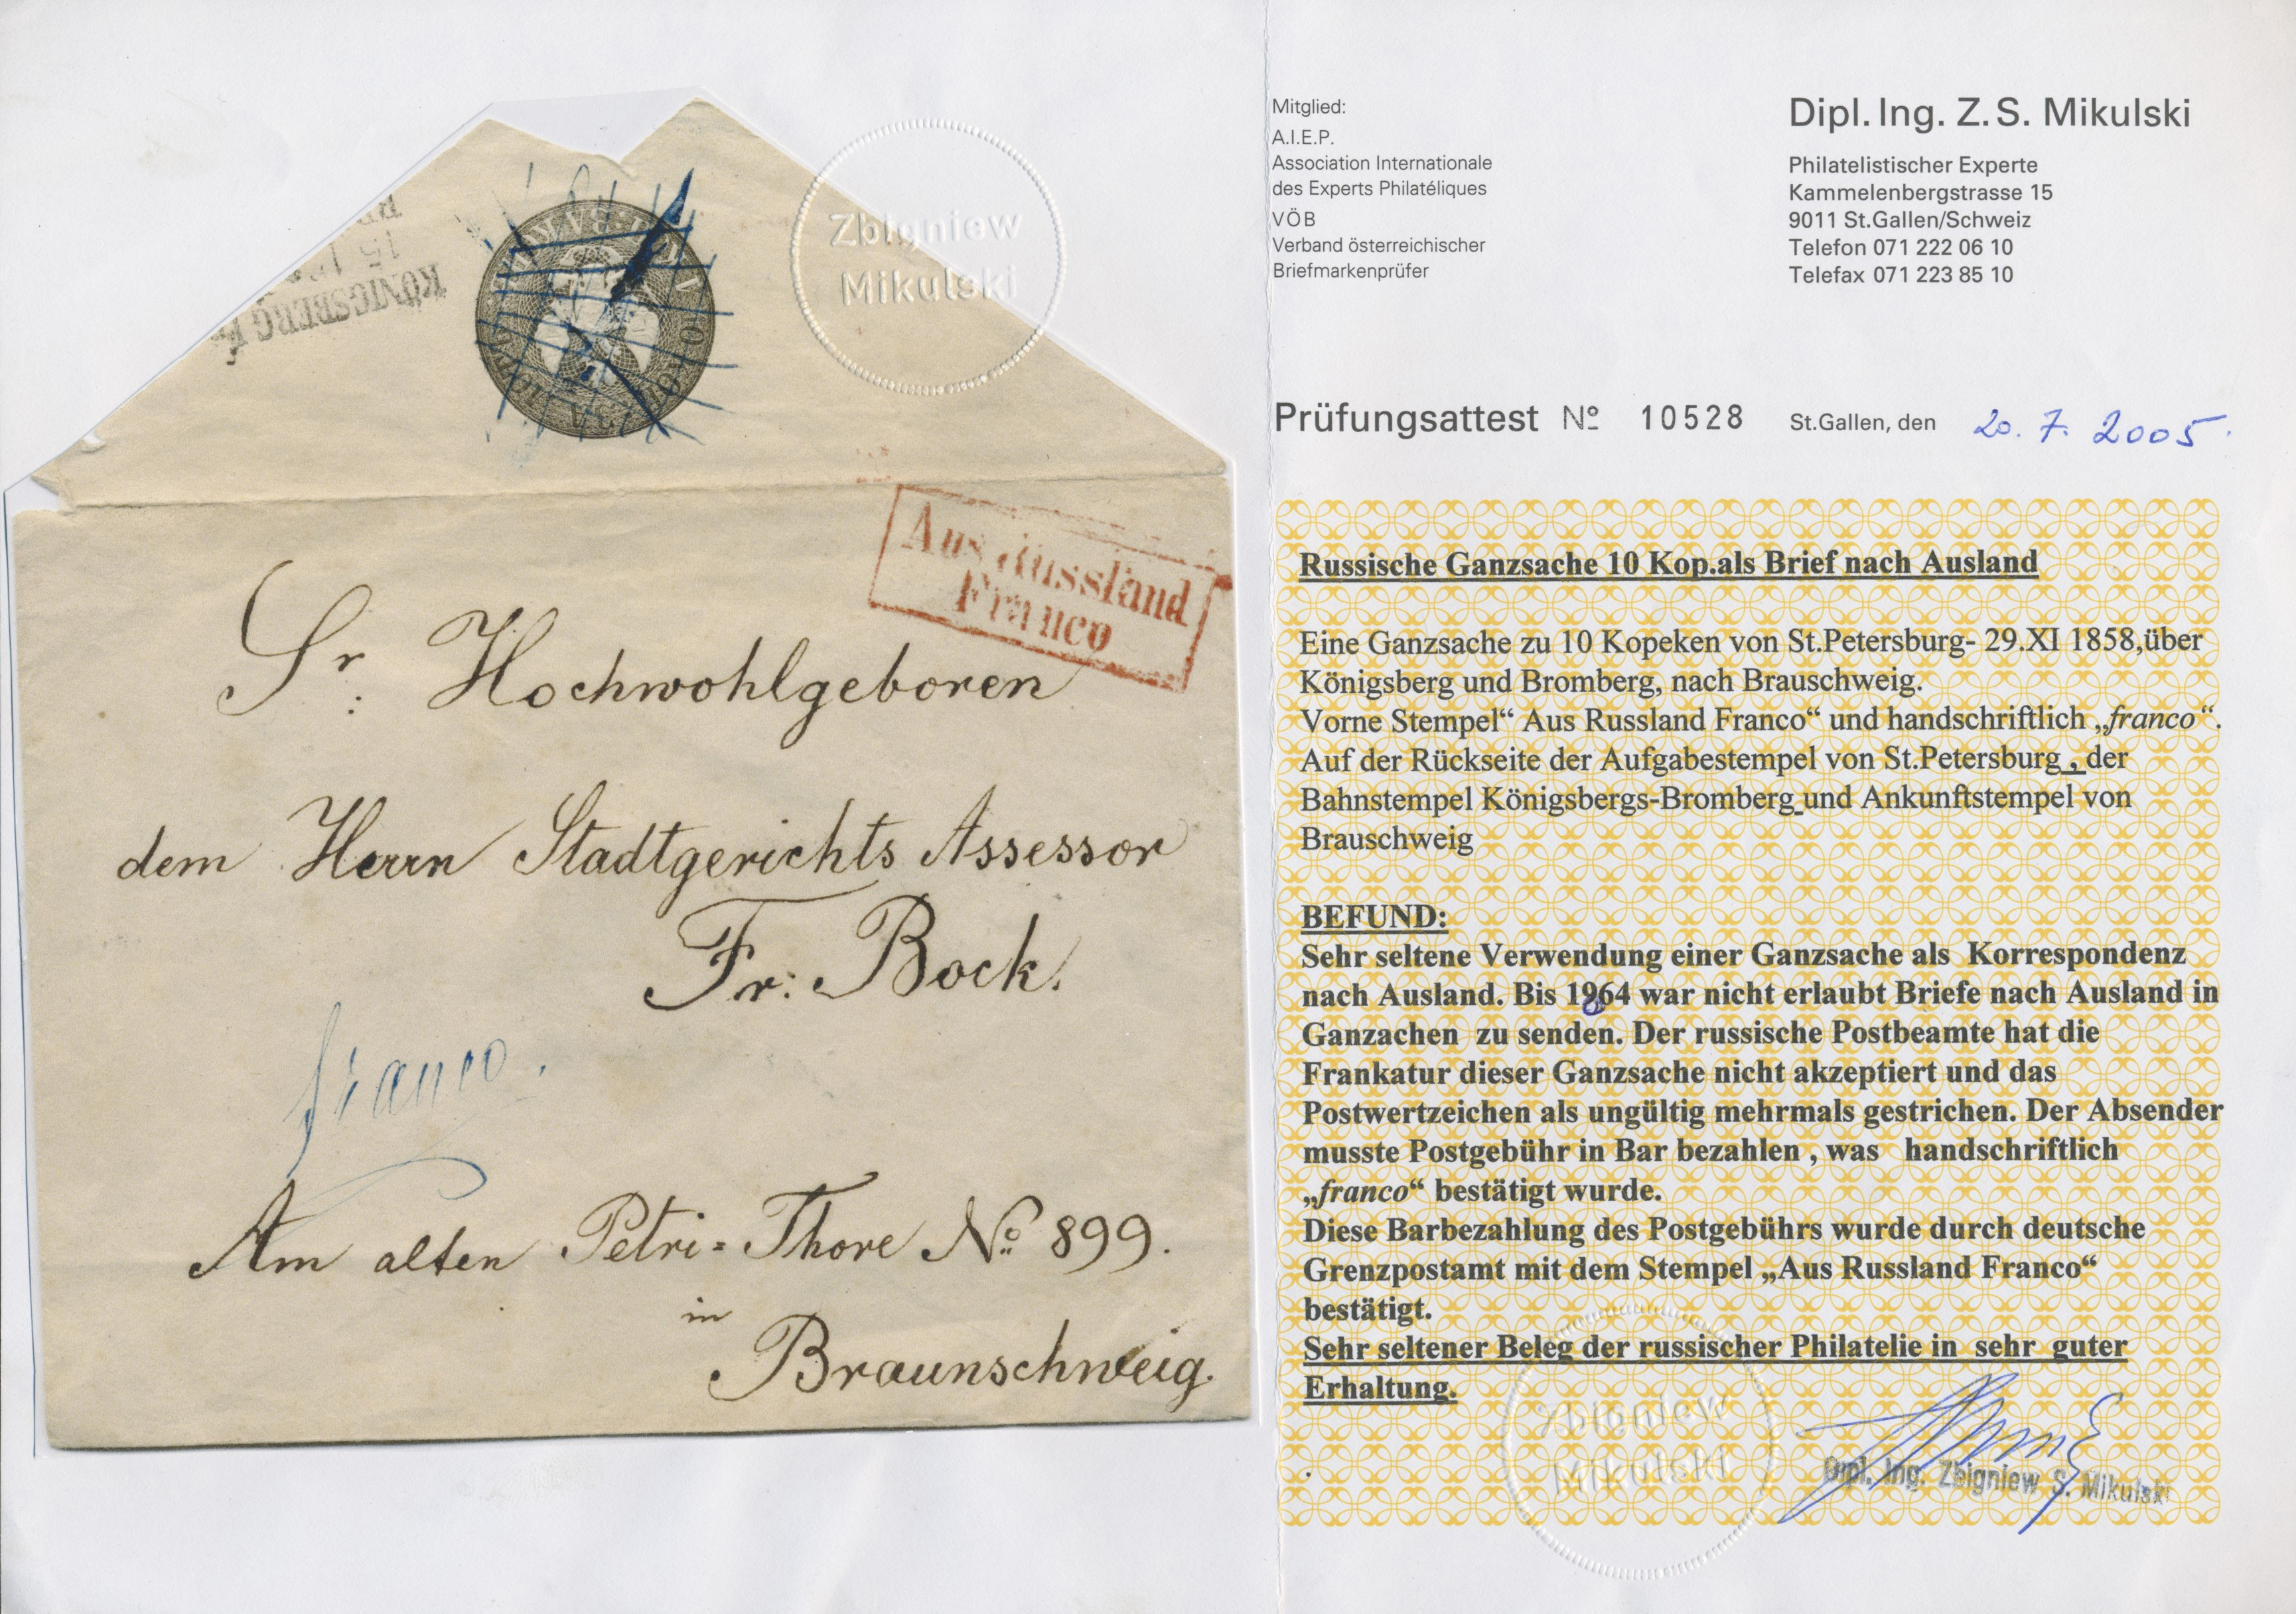 KÖNIGSBERG
15
Zbigniew
Mikulski
Aus Russland
Franco
Sr: Hochwohlgeboren
dem Herrn Stadtgerichts Assessor
Fr: Bock.
franco.
Am alten Petri=Thore No 899.
in
Braunschweig.
Mitglied:
A.I.E.P.
Association Internationale
des Experts Philatéliques
VÖB
Verband österreichischer
Briefmarkenprüfer
Dipl. Ing. Z. S. Mikulski
Philatelistischer Experte
Kammelenbergstrasse 15
9011 St.Gallen/Schweiz
Telefon 071 222 06 10
Telefax 071 223 85 10
Prüfungsattest No 10528 St.Gallen, den 20. 7. 2005.
Russische Ganzsache 10 Kop.als Brief nach Ausland
Eine Ganzsache zu 10 Kopeken von St.Petersburg- 29.XI 1858,über
Königsberg und Bromberg, nach Brauschweig.
Vorne Stempel“ Aus Russland Franco“ und handschriftlich „franco“.
Auf der Rückseite der Aufgabestempel von St.Petersburg , der
Bahnstempel Königsbergs-Bromberg und Ankunftstempel von
Brauschweig
BEFUND:
Sehr seltene Verwendung einer Ganzsache als Korrespondenz
nach Ausland. Bis 1864 war nicht erlaubt Briefe nach Ausland in
Ganzachen zu senden. Der russische Postbeamte hat die
Frankatur dieser Ganzsache nicht akzeptiert und das
Postwertzeichen als ungültig mehrmals gestrichen. Der Absender
musste Postgebühr in Bar bezahlen , was handschriftlich
„franco“ bestätigt wurde.
Diese Barbezahlung des Postgebührs wurde durch deutsche
Grenzpostamt mit dem Stempel „Aus Russland Franco“
bestätigt.
Sehr seltener Beleg der russischer Philatelie in sehr guter
Erhaltung.
Zbigniew
Mikulski
Dipl. Ing. Zbigniew S. Mikulski